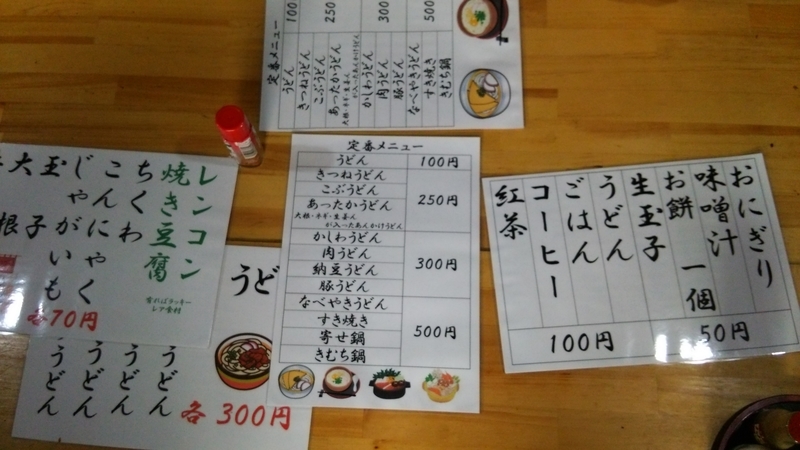 定番メニュー
うどん 100円
きつねうどん
こぶうどん
あったかうどん
大根・ネギ・生姜ん
が入ったあんかけうどん
250円
かしわうどん
肉うどん
納豆うどん
豚うどん
300円
なべやきうどん
すき焼き
寄せ鍋
きむち鍋
500円
定番メニュー
100
250
300
500
うどん
きつねうどん
こぶうどん
あったかうどん
かしわうどん
肉うどん
豚うどん
なべやきうどん
すき焼き
きむち鍋
おにぎり
味噌汁
お餅 一個
生玉子
うどん
ごはん
コーヒー
紅茶
50円
100円
レンコン
焼き豆腐
ちくわ
こんにゃく
じゃがいも
玉子
大根
各70円
うど
うどん
うどん
うどん
うどん
各300円